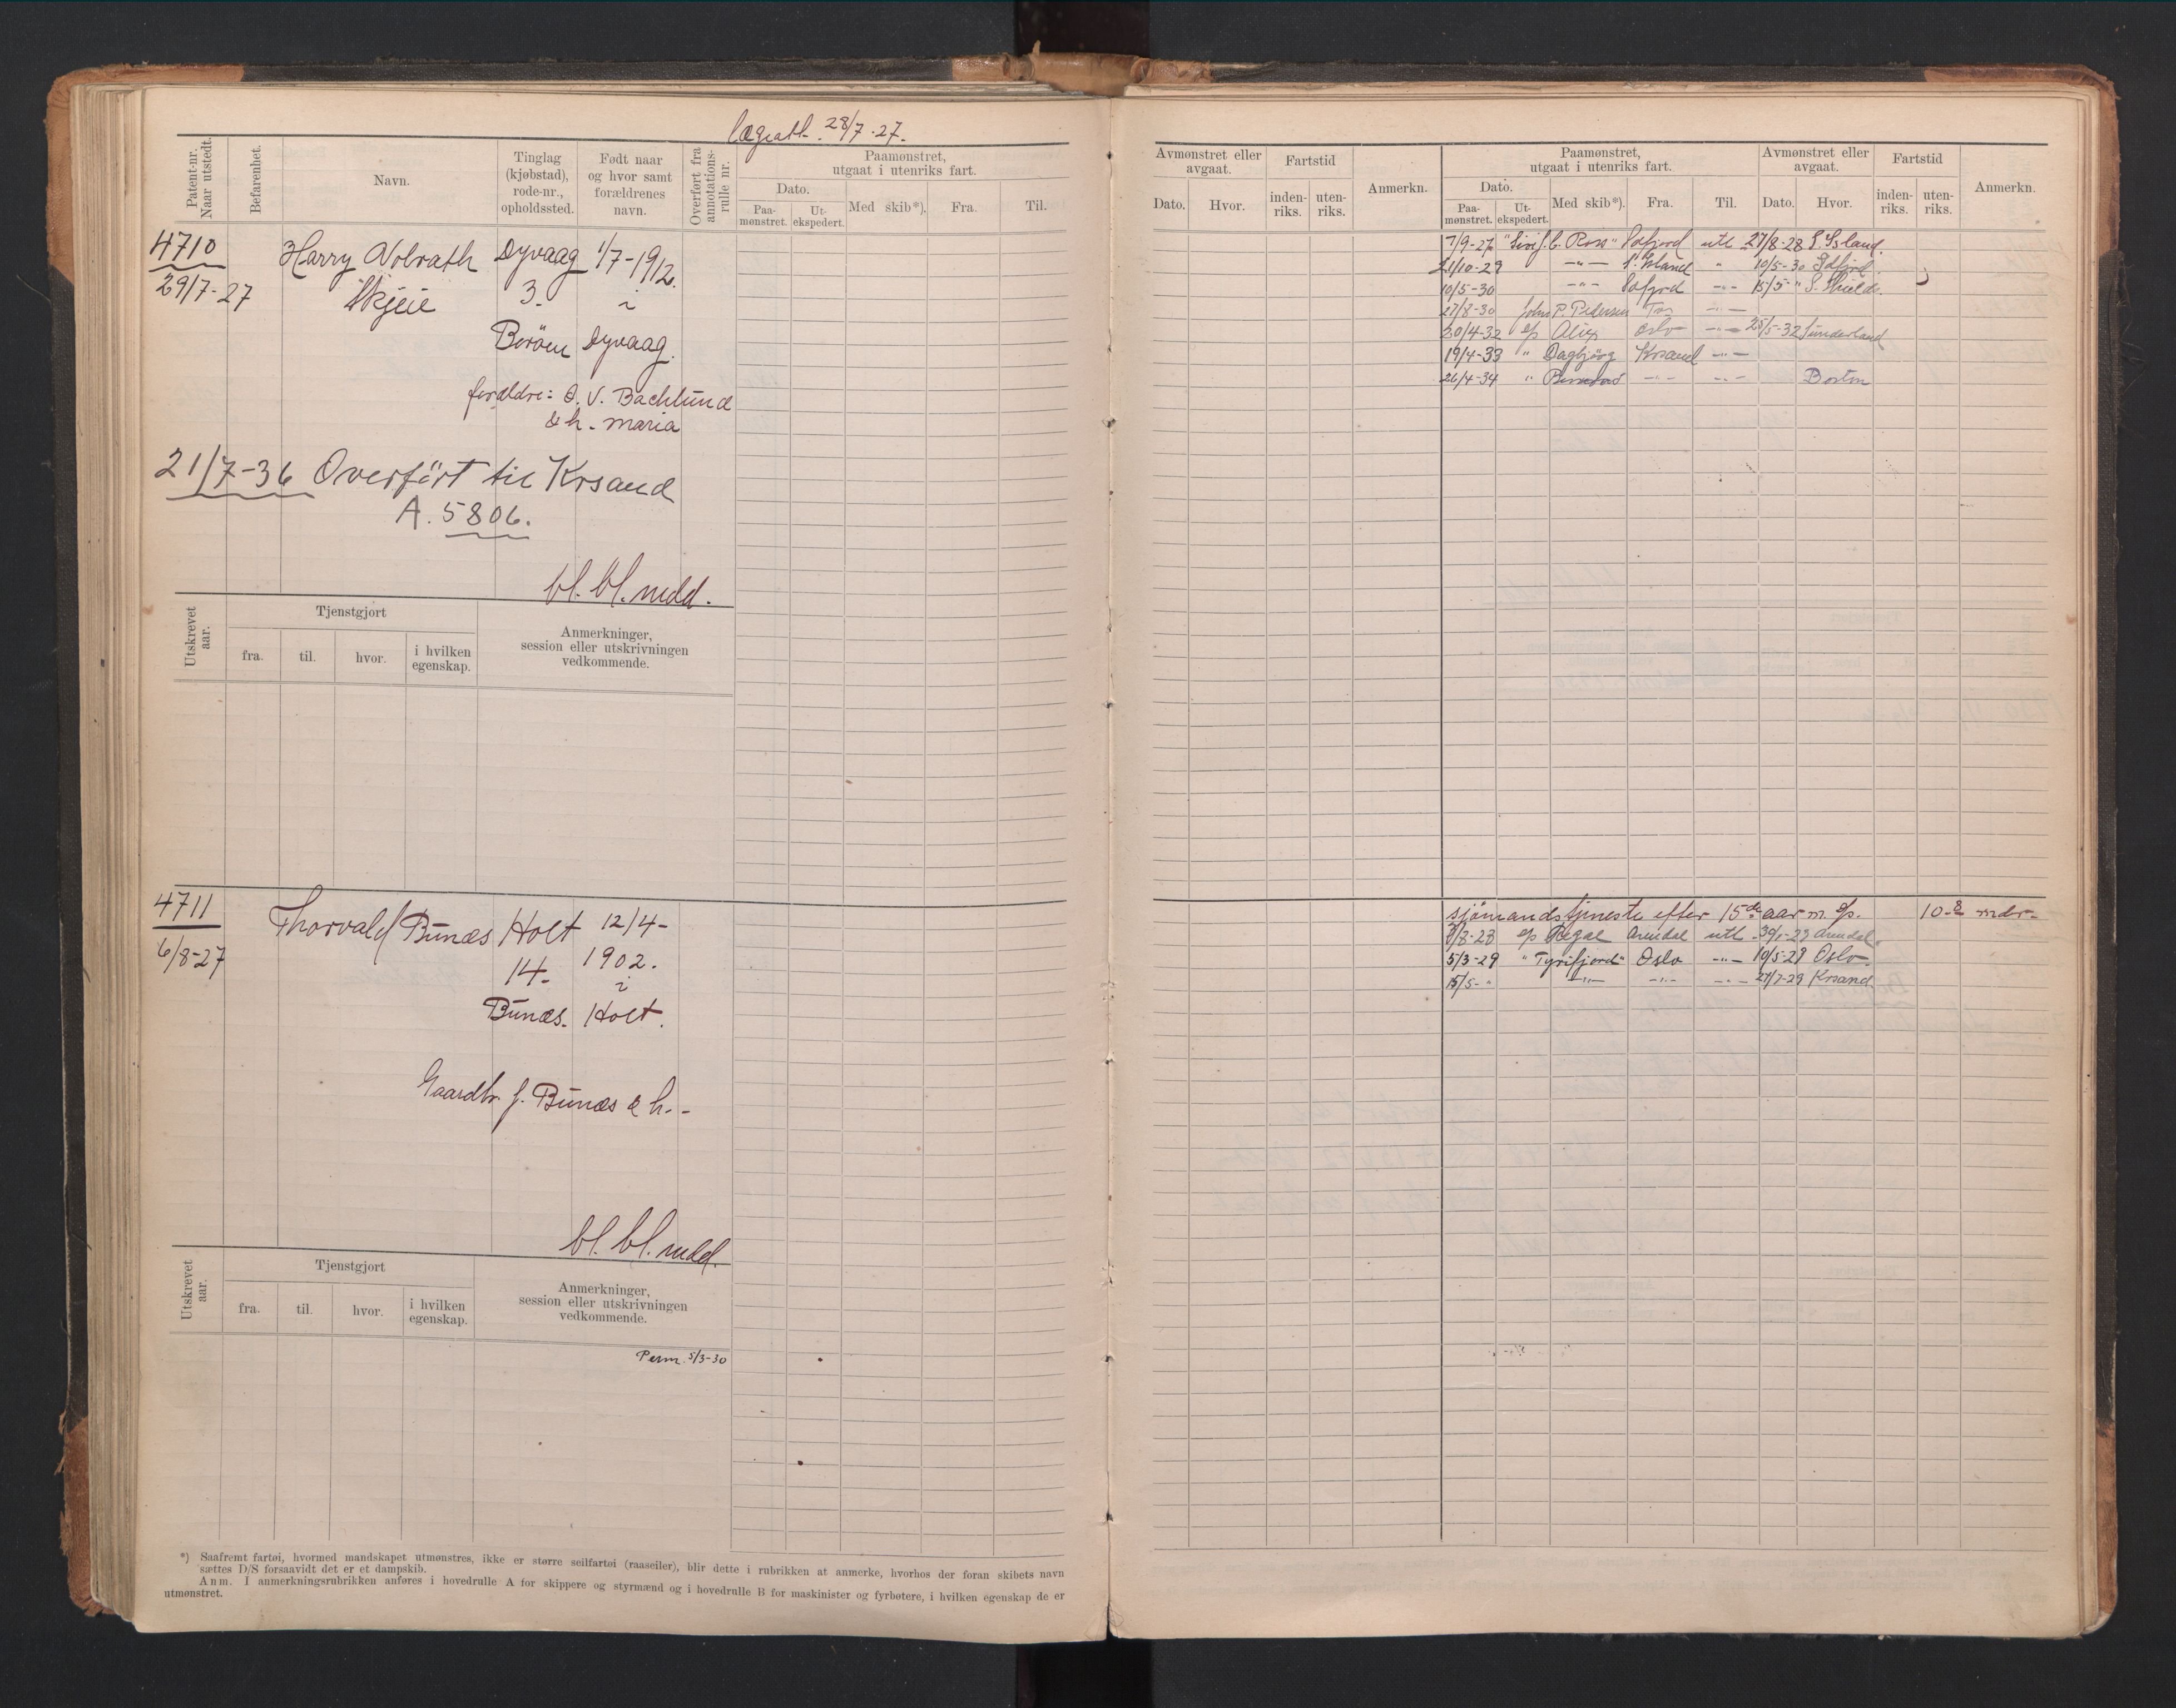 lægeatt. 28/7-27.
Patent-nr. Naar utstedt.
Befarenhet.
Navn.
Tinglag (kjøbstad), rode-nr., opholdssted.
Født naar og hvor samt forældrenes navn.
Overført fra annotations-rulle nr.
Paamønstret, utgaat i utenriks fart.
Dato.
Paa-mønstret.
Ut-ekspedert.
Med skib*).
Fra.
Til.
4710
29/7-27
Harry Volrath
Skjeie
Dyvaag
3.
Borøen
1/7-1912.
i
Dyvaag.
forældre: O. V. Bachlund
& h. maria
21/7-36 Overført til Krsand
A. 5806.
bl. bl. medd.
Utskrevet aar.
Tjenstgjort
fra.
til.
hvor.
i hvilken egenskap.
Anmerkninger,
session eller utskrivningen
vedkommende.
4711
6/8-27
Thorvald Bunæs
Holt
14.
Bunæs.
12/4-
1902.
i
Holt.
Gaardbr. J. Bunæs & h.-
bl. bl. medd.
Utskrevet aar.
Tjenstgjort
fra.
til.
hvor.
i hvilken egenskap.
Anmerkninger,
session eller utskrivningen
vedkommende.
Perm. 5/3-30
*) Saafremt fartøi, hvormed mandskapet utmønstres, ikke er større seilfartøi (raaseiler), blir dette i rubrikken at anmerke, hvorhos der foran skibets navn
sættes D/S forsaavidt det er et dampskib.
Anm. I anmerkningsrubrikken anføres i hovedrulle A for skippere og styrmænd og i hovedrulle B for maskinister og fyrbøtere, i hvilken egenskap de er
utmønstret.
Avmønstret eller avgaat.
Dato.
Hvor.
Fartstid
inden-riks.
uten-riks.
Anmerkn.
Paamønstret, utgaat i utenriks fart.
Dato.
Paa-mønstret.
Ut-ekspedert.
Med skib*).
Fra.
Til.
Avmønstret eller avgaat.
Dato.
Hvor.
Fartstid
inden-riks.
uten-riks.
Anmerkn.
7/9-27 "Sir J. C. Ross" utl 27/8-28 S. Island.
21/10-29 -"- S. Island " 10/5-30
10/5-30 -"- -"- 15/5-" S. Shields.
27/8-30 John P. Pedersen -"-
20/4-32 s/s Alix Oslo -"- 25/5-32 Sunderland
19/4-33 " Dagbjørg Krsand -"-
26/4-34 " -"- -"- Boston
sjømandstjeneste efter 15de aar m. s/s. 10-8 mdr-
s/s Regal Arendal utl. Arendal.
5/3-29 " Tyrifjord" Oslo -"- 10/5-29 Oslo-
15/5-" -"- -"- -"- 27/7-29 Krsand